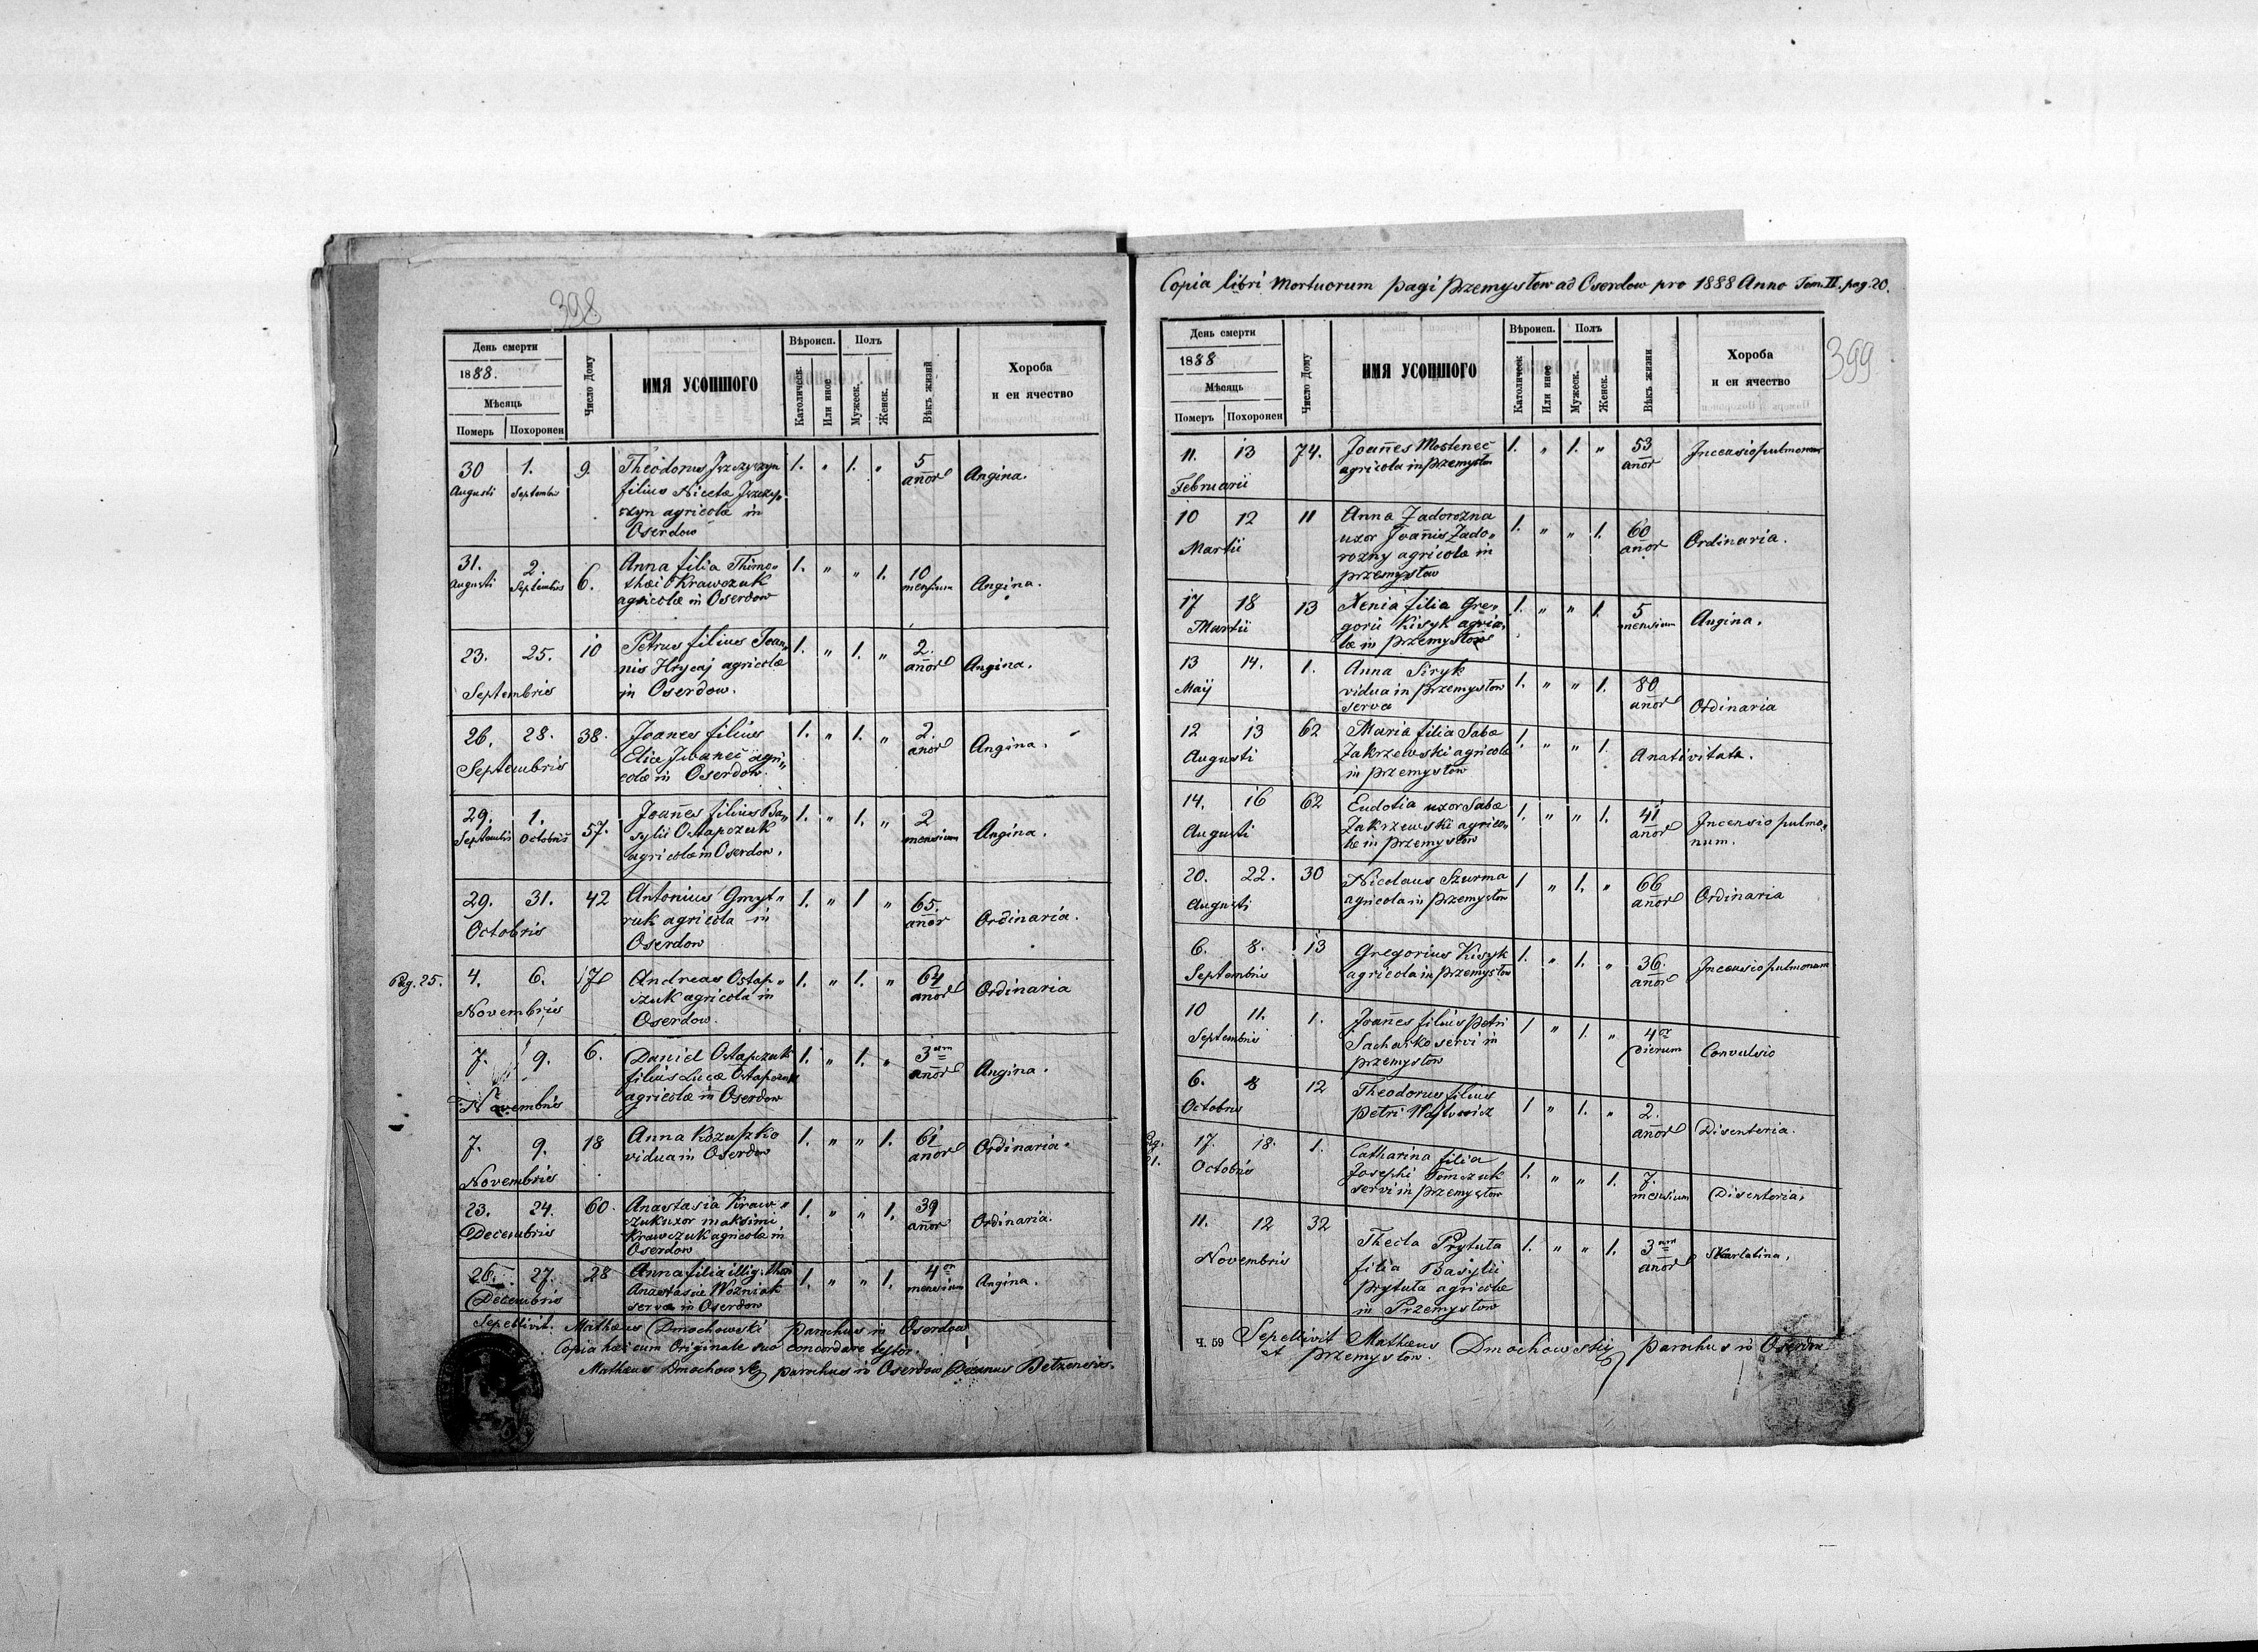 398
День смерти
1888.
Мѣсяць
Померъ
Похоронен
Число Дому
ИМЯ УСОПШОГО
Вѣроисп.
Католическ.
Или иное
Полъ
Мужеск.
Женск.
Вѣкъ жизни
Хороба
и еи ячество
30 1. 9. Theodorus 1. " 1. " 5 Angina.
Augusti Septembris filius Nicetæ anor
agricolæ in
Oserdow
31. 2. 6. Anna filia Timo- 1. " " 1. 10 Angina.
Augusti Septembris thæi Krawczuk mensium
agricolæ in Oserdow
23. 25. 10 Petrus filius Joan- 1. " 1. " 2. Angina.
Septembris nis Hrycaj agricolæ anor
in Oserdow.
26. 28. 38. Joanes filius 1. " 1. " 2. Angina.
Septembris Eliæ Iwanec agri- anor
colæ in Oserdow.
29. 1. 57. Joañes filius Ba- 1. " 1. " 2 Angina.
Septembris Octobris sylii Ostapczuk mensium
agricolæ in Oserdow.
29. 31. 42 Antonius Gmyt- 1. " 1 " 65. Ordinaria.
Octobris ruk agricola in anor
Oserdow
Pag. 25. 4. 6. 17 Andreas Ostap- 1. " 1. " 64 Ordinaria
Novembris czuk agricola in anor
Oserdow.
7. 9. 6. Daniel Ostapczuk 1. " 1. " 3um Angina.
Novembris filius Lucæ Ostapczuk anor
agricolæ in Oserdow
7. 9. 18 Anna Kozuszko 1. " " 1. 61 Ordinaria.
Novembris vidua in Oserdow anor
23. 24. 60. Anastasia Kraw- 1. " " 1. 39 Ordinaria.
Decembris czuk uxor maksimi anor
Krawczuk agricolæ in
Oserdow
26. 27. 28 Anna filia illig. thori 1. " " 1. 4or Angina.
Decembris Anastasiæ Wozniak mensium
servæ in Oserdow
Sepellivit. Mathæus Dmochowski parochus in Oserdow
Copia hæc cum Originale suo concordare testor.
Mathæus Dmochowskij parochus in Oserdow Decanus Betzensis.
Copia libri Mortuorum pagi Przemysłow ad Oserdow pro 1888 Anno Tom. II. pag. 20.
399
День смерти
1888
Мѣсяць
Померъ
Похоронен
Число Дому
ИМЯ УСОПШОГО
Вѣроисп.
Католическ
Или иное
Полъ
Мужеск.
Женск.
Вѣкъ жизни
Хороба
и еи ячество
11. 13 74. Joañes Mostenec 1. " 1. " 53 Incensio pulmonum
Februarii agricola in Przemysłow anor
10 12 11 Anna Zadorozna 1. " " 1. 60 Ordinaria.
Martii uxor Joañis Zado- anor
rozny agricolæ in
przemysłow
17 18 13 Xenia filia Gre- 1. " " 1. 5 Angina.
Martii gorii Kisyk agrico- mensium
læ in przemysłow
13 14. 1. Anna Siryk 1. " " 1. 80 Ordinaria
Maij vidua in przemysłow anor
serva
12 13 62 Maria filia Sabæ 1. " " 1. Anativitate.
Augusti Zakrzewski agricolæ
in przemysłow
14. 16 62 Eudotia uxor Sabæ 1. " " 1. 41 Incensio pulmo-
Augusti Zakrzewski agrico- anor num.
læ in przemysłow
20. 22. 30 Nicolaus Szurma 1 " 1. " 66 Ordinaria
Augusti agricola in przemysłow anor
6. 8. 13 Gregorius Kisyk 1. " 1. " 36. Incensio pulmonum
Septembris agricola in przemysłow anor
10 11. 1. Joañes filius petri 1 " 1. " 4or Convulsio
Septembris Sacharko servi in dierum
przemysłow
6. 8 12 Theodorus filius 1 " 1. " 2. Disenteria.
Octobris petri anor
Pag. 21. 17. 18. 1. Catharina filia 1. " " 1. 7. Disenteria.
Octobris Josephi Tomczuk mensium
servi in przemysłow
11. 12 32 Thecla Prytuła 1. " " 1. 3um Skarlatina.
Novembris filia Basylii anor
Prytuła agricolæ
in Przemysłow
Ч. 59 Sepellivit Mathæus Dmochowskij parochus in Oserdow
et przemysłow.